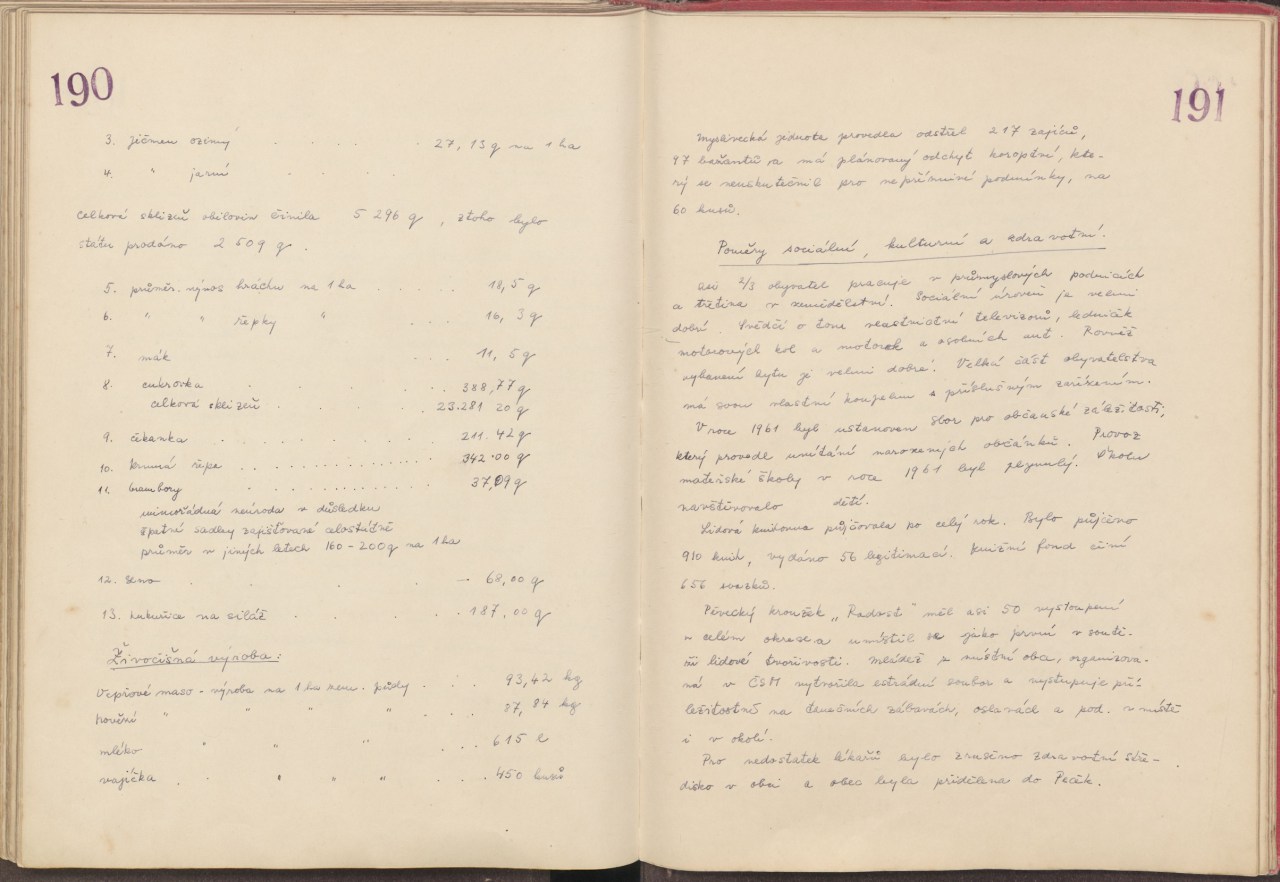 190
3. ječmen ozimý . . . . . 27,13 q na 1 ha
4. " jarní . . . .
Celková sklizeň obilovin činila 5 296 q, z toho bylo
státu prodáno 2 509 q.
5. průměr. výnos hráchu na 1 ha . . . . . 18,5 q
6. " " řepky " . . . 16,3 q
7. mák . . . 11,5 q
8. cukrovka . . . . . . 388,77 q
celková sklizeň . . . . . 23.281 20 q
9. čekanka . . . . . . . . 211.42 q
10. krmná řepa . . . . . . . . . . 342.00 q
11. brambory . . . . . . . . . . 37,09 q
mimořádná neúroda v důsledku
špatné sadby zajišťované celostátně
průměr v jiných letech 160-200 q na 1 ha
12. seno . . . . — 68,00 q
13. kukuřice na siláž . . . . . 187,00 q
Živočišná výroba:
Vepřové maso - výroba na 1 ha zem. půdy . . 93,42 kg
hovězí " " " " . . . 37,84 kg
mléko " " " . . . 615 l
vajíčka . . " " " . . . 450 kusů
191
Myslivecká jednota provedla odstřel 217 zajíců,
97 bažantů a má plánovaný odchyt koroptví, kte-
rý se neuskutečnil pro nepříznivé podmínky, na
60 kusů.
Poměry sociální, kulturní a zdravotní.
Asi 2/3 obyvatel pracuje v průmyslových podnicích
a třetina v zemědělství. Sociální úroveň je velmi
dobrá. Svědčí o tom vlastnictví televizorů, ledniček
motorových kol a motorek a osobních aut. Rovněž
vybavení bytu je velmi dobré. Velká část obyvatelstva
má svou vlastní koupelnu s příslušným zařízením.
V roce 1961 byl ustanoven sbor pro občanské záležitosti,
který provedl uvítání narozených občánků. Provoz
mateřské školy v roce 1961 byl plynulý. Školu
navštěvovalo dětí.
Lidová knihovna půjčovala po celý rok. Bylo půjčeno
910 knih, vydáno 56 legitimací. Knižní fond činí
656 svazků.
Pěvecký kroužek "Radost" měl asi 50 vystoupení
v celém okrese a umístil se jako první v soutě-
ži lidové tvořivosti. Mládež z místní obce, organizova-
ná v ČSM vytvořila estrádní soubor a vystupuje pří-
ležitostně na tanečních zábavách, oslavách a pod. v místě
i v okolí.
Pro nedostatek lékařů bylo zrušeno zdravotní stře-
disko v obci a obec byla přidělena do Peček.